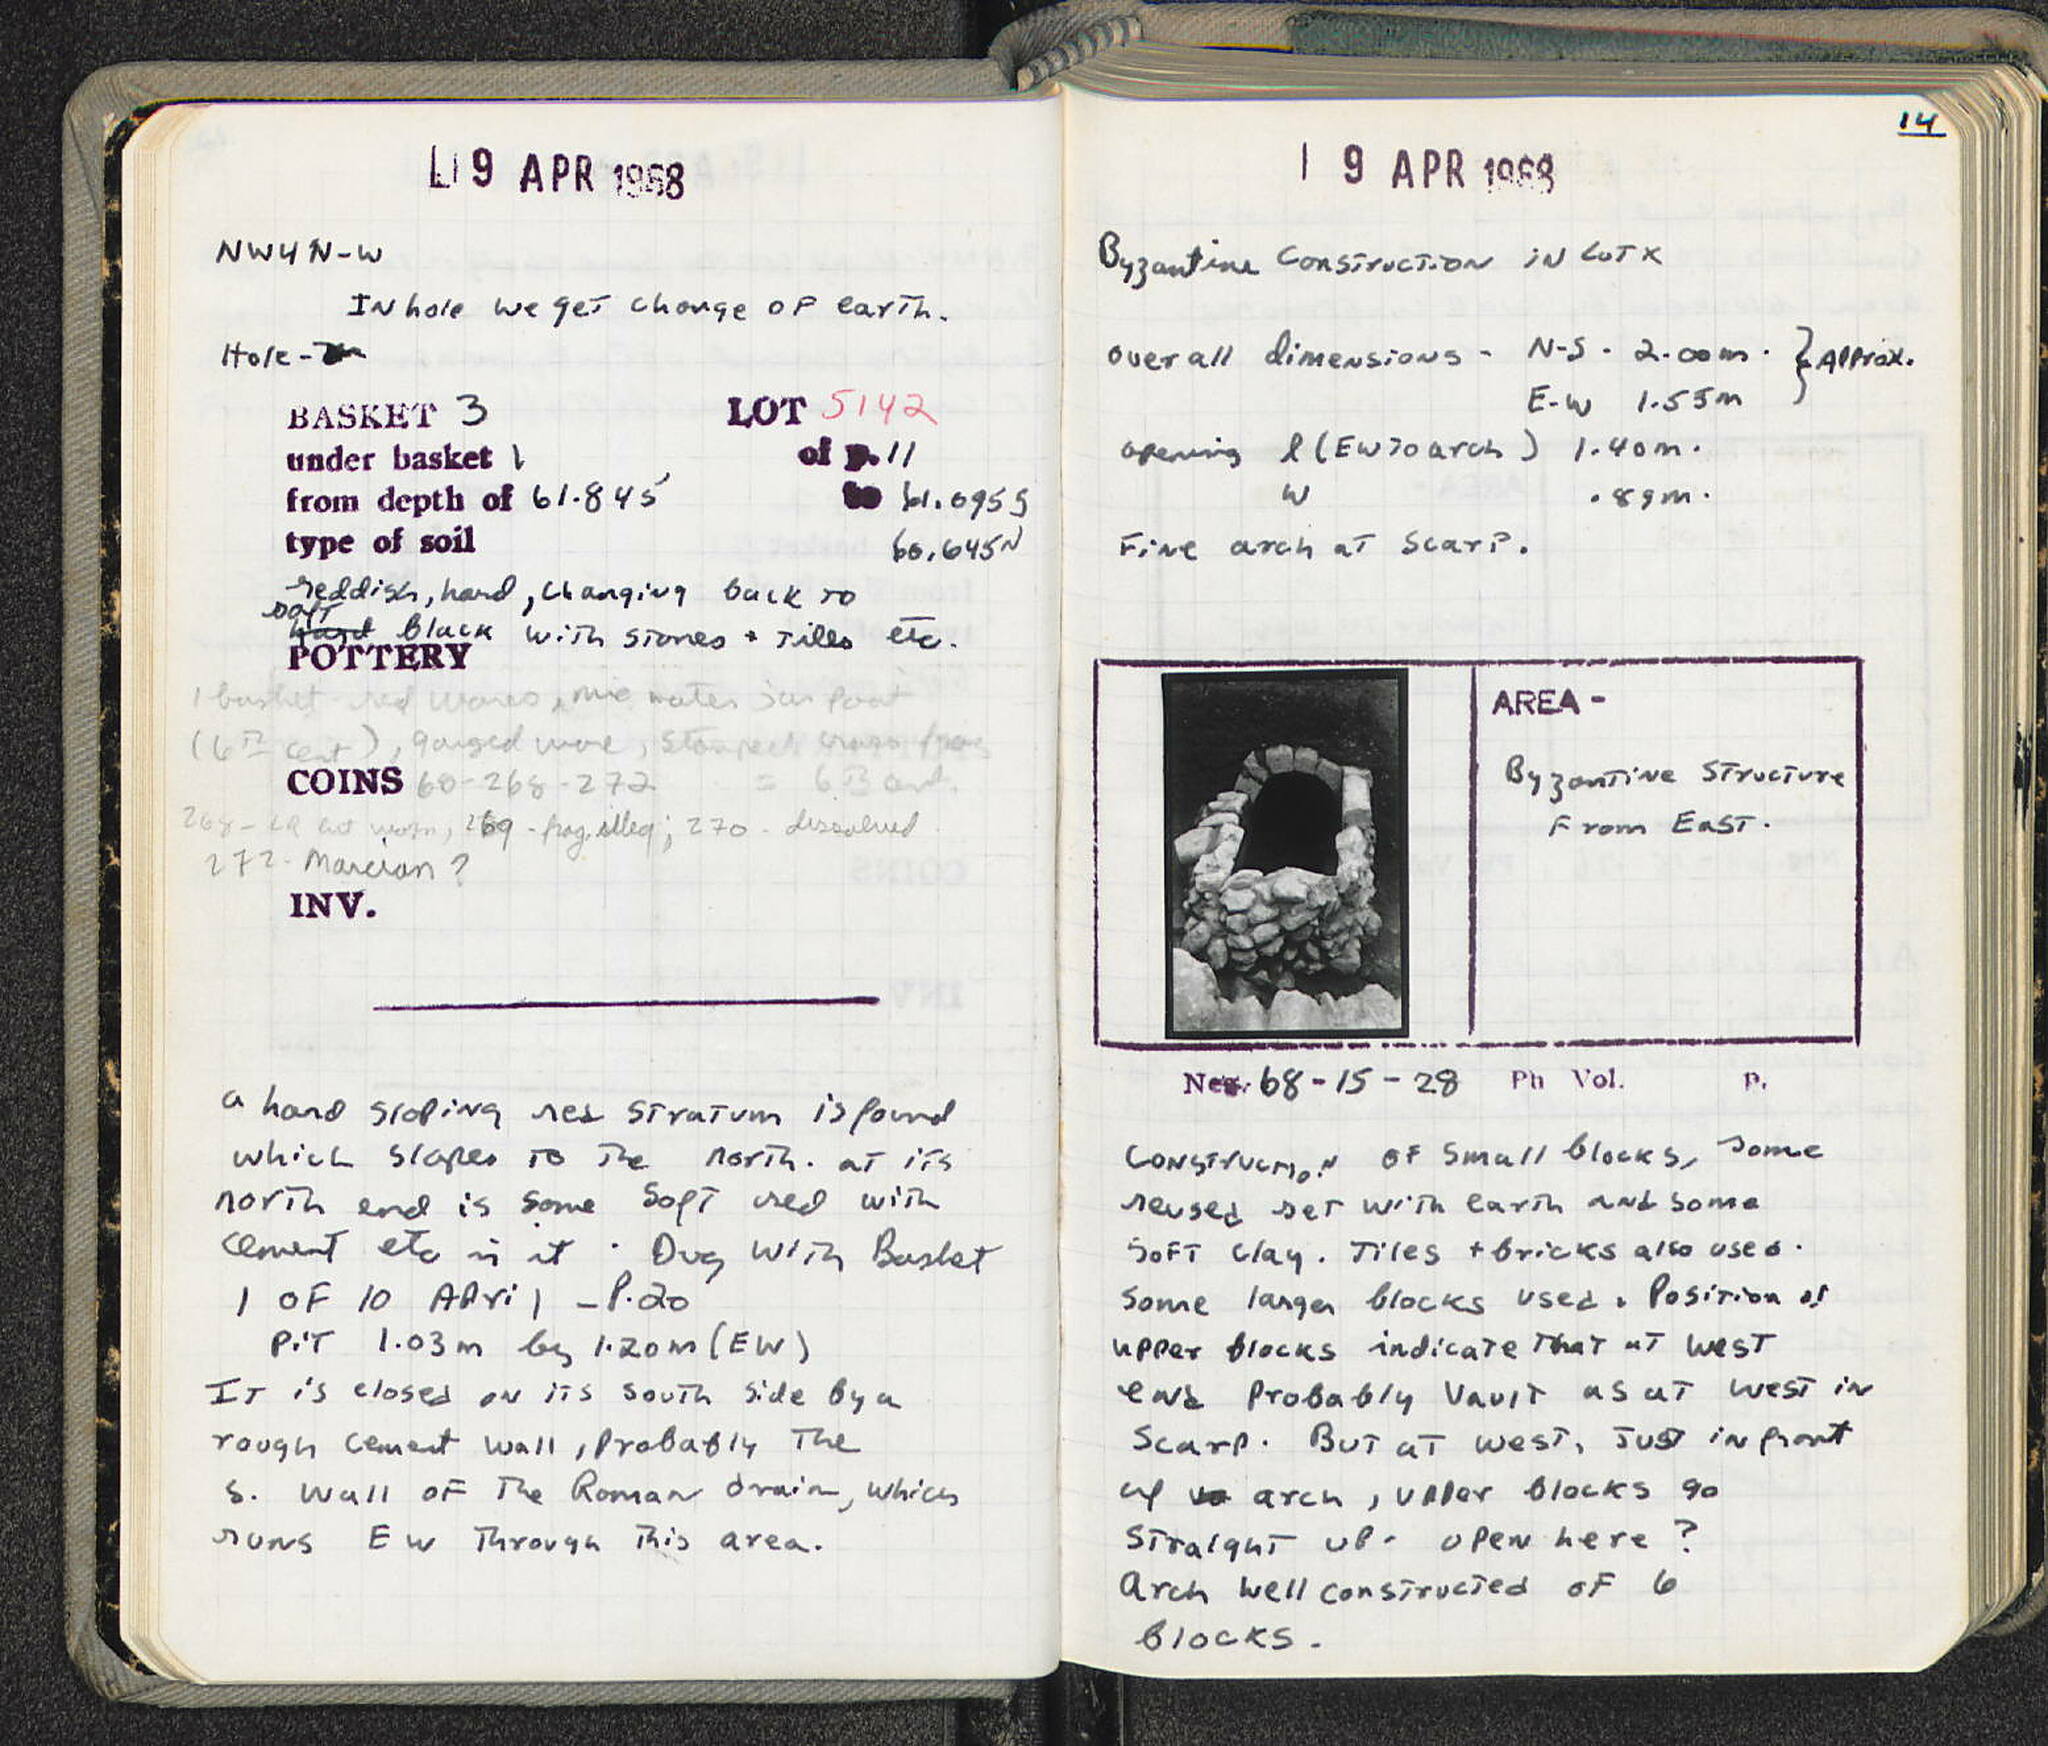 19 APR 1968
NW4N-W
IN hole we get change of earth.
Hole-
BASKET 3 LOT 5142
under basket 1 of p. 11
from depth of 61.845 to 61.095S
type of soil 60.645N
reddish, hard, changing back to
soft
hard black with stones + tiles etc.
POTTERY
1 basket red wares, mic water jar foot
(6th cent), gouged ware, stamped
COINS 68-268-272 = 6th cent.
268- not worn, 269 - frag. illeg; 270 - dissolved
272- Marcian?
INV.
a hard sloping red stratum is found
which slopes to the north. at its
north end is some soft red with
cement etc in it. Dug with Basket
1 of 10 April - P.20
Pit 1.03m by 1.20m (EW)
It is closed on its south side by a
rough cement wall, probably the
S. wall of the Roman drain, which
runs EW through this area.
14
19 APR 1968
Byzantine Construction in Lot X
overall dimensions - N-S. 2.00m. } Approx.
E-W 1.53m
opening l (EW to arch) 1.40m.
W .89m.
Fine arch at scarp.
AREA -
Byzantine Structure
From East.
Neg. 68-15-28 Ph Vol. p.
Construction of small blocks, some
reused set with earth and some
soft clay. Tiles + bricks also used.
Some larger blocks used. Position of
upper blocks indicate that at west
end probably vault as at west in
scarp. But at west, just in front
of arch, upper blocks go
straight up- open here?
Arch well constructed of 6
blocks.